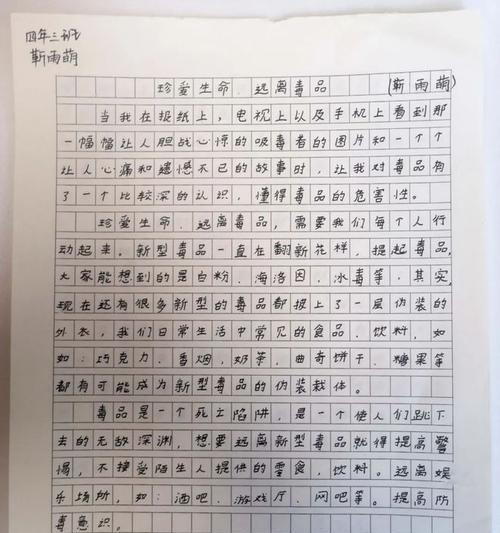 四年三班
靳雨萌
珍爱生命、远离毒品 (靳雨萌)
当我在报纸上，电视上以及手机上看到那
一幅幅让人胆战心惊的吸毒者的图片和一个个
让人心痛和遗憾不已的故事时，让我对毒品有
了一个比较深的认识，懂得毒品的危害性。
珍爱生命、远离毒品，需要我们每个人行
动起来。新型毒品一直在翻新花样，提起毒品，
大家能想到的是白粉、海洛因，冰毒等，其实，
现在还有很多新型的毒品都披上了一层伪装的
外衣，我们日常生活中常见的食品、饮料，如
如：巧克力、香烟，奶茶，曲奇饼干、糖果等
都有可能成为新型毒品的伪装载体。
毒品是一个死亡陷阱，是一个使人们跳下
去的无敌深渊，想要远离新型毒品就得提高警
惕，不接受陌生人提供的零食，饮料。远离娱
乐场所，如：酒吧、游戏厅、网吧等。提高防
毒意识。